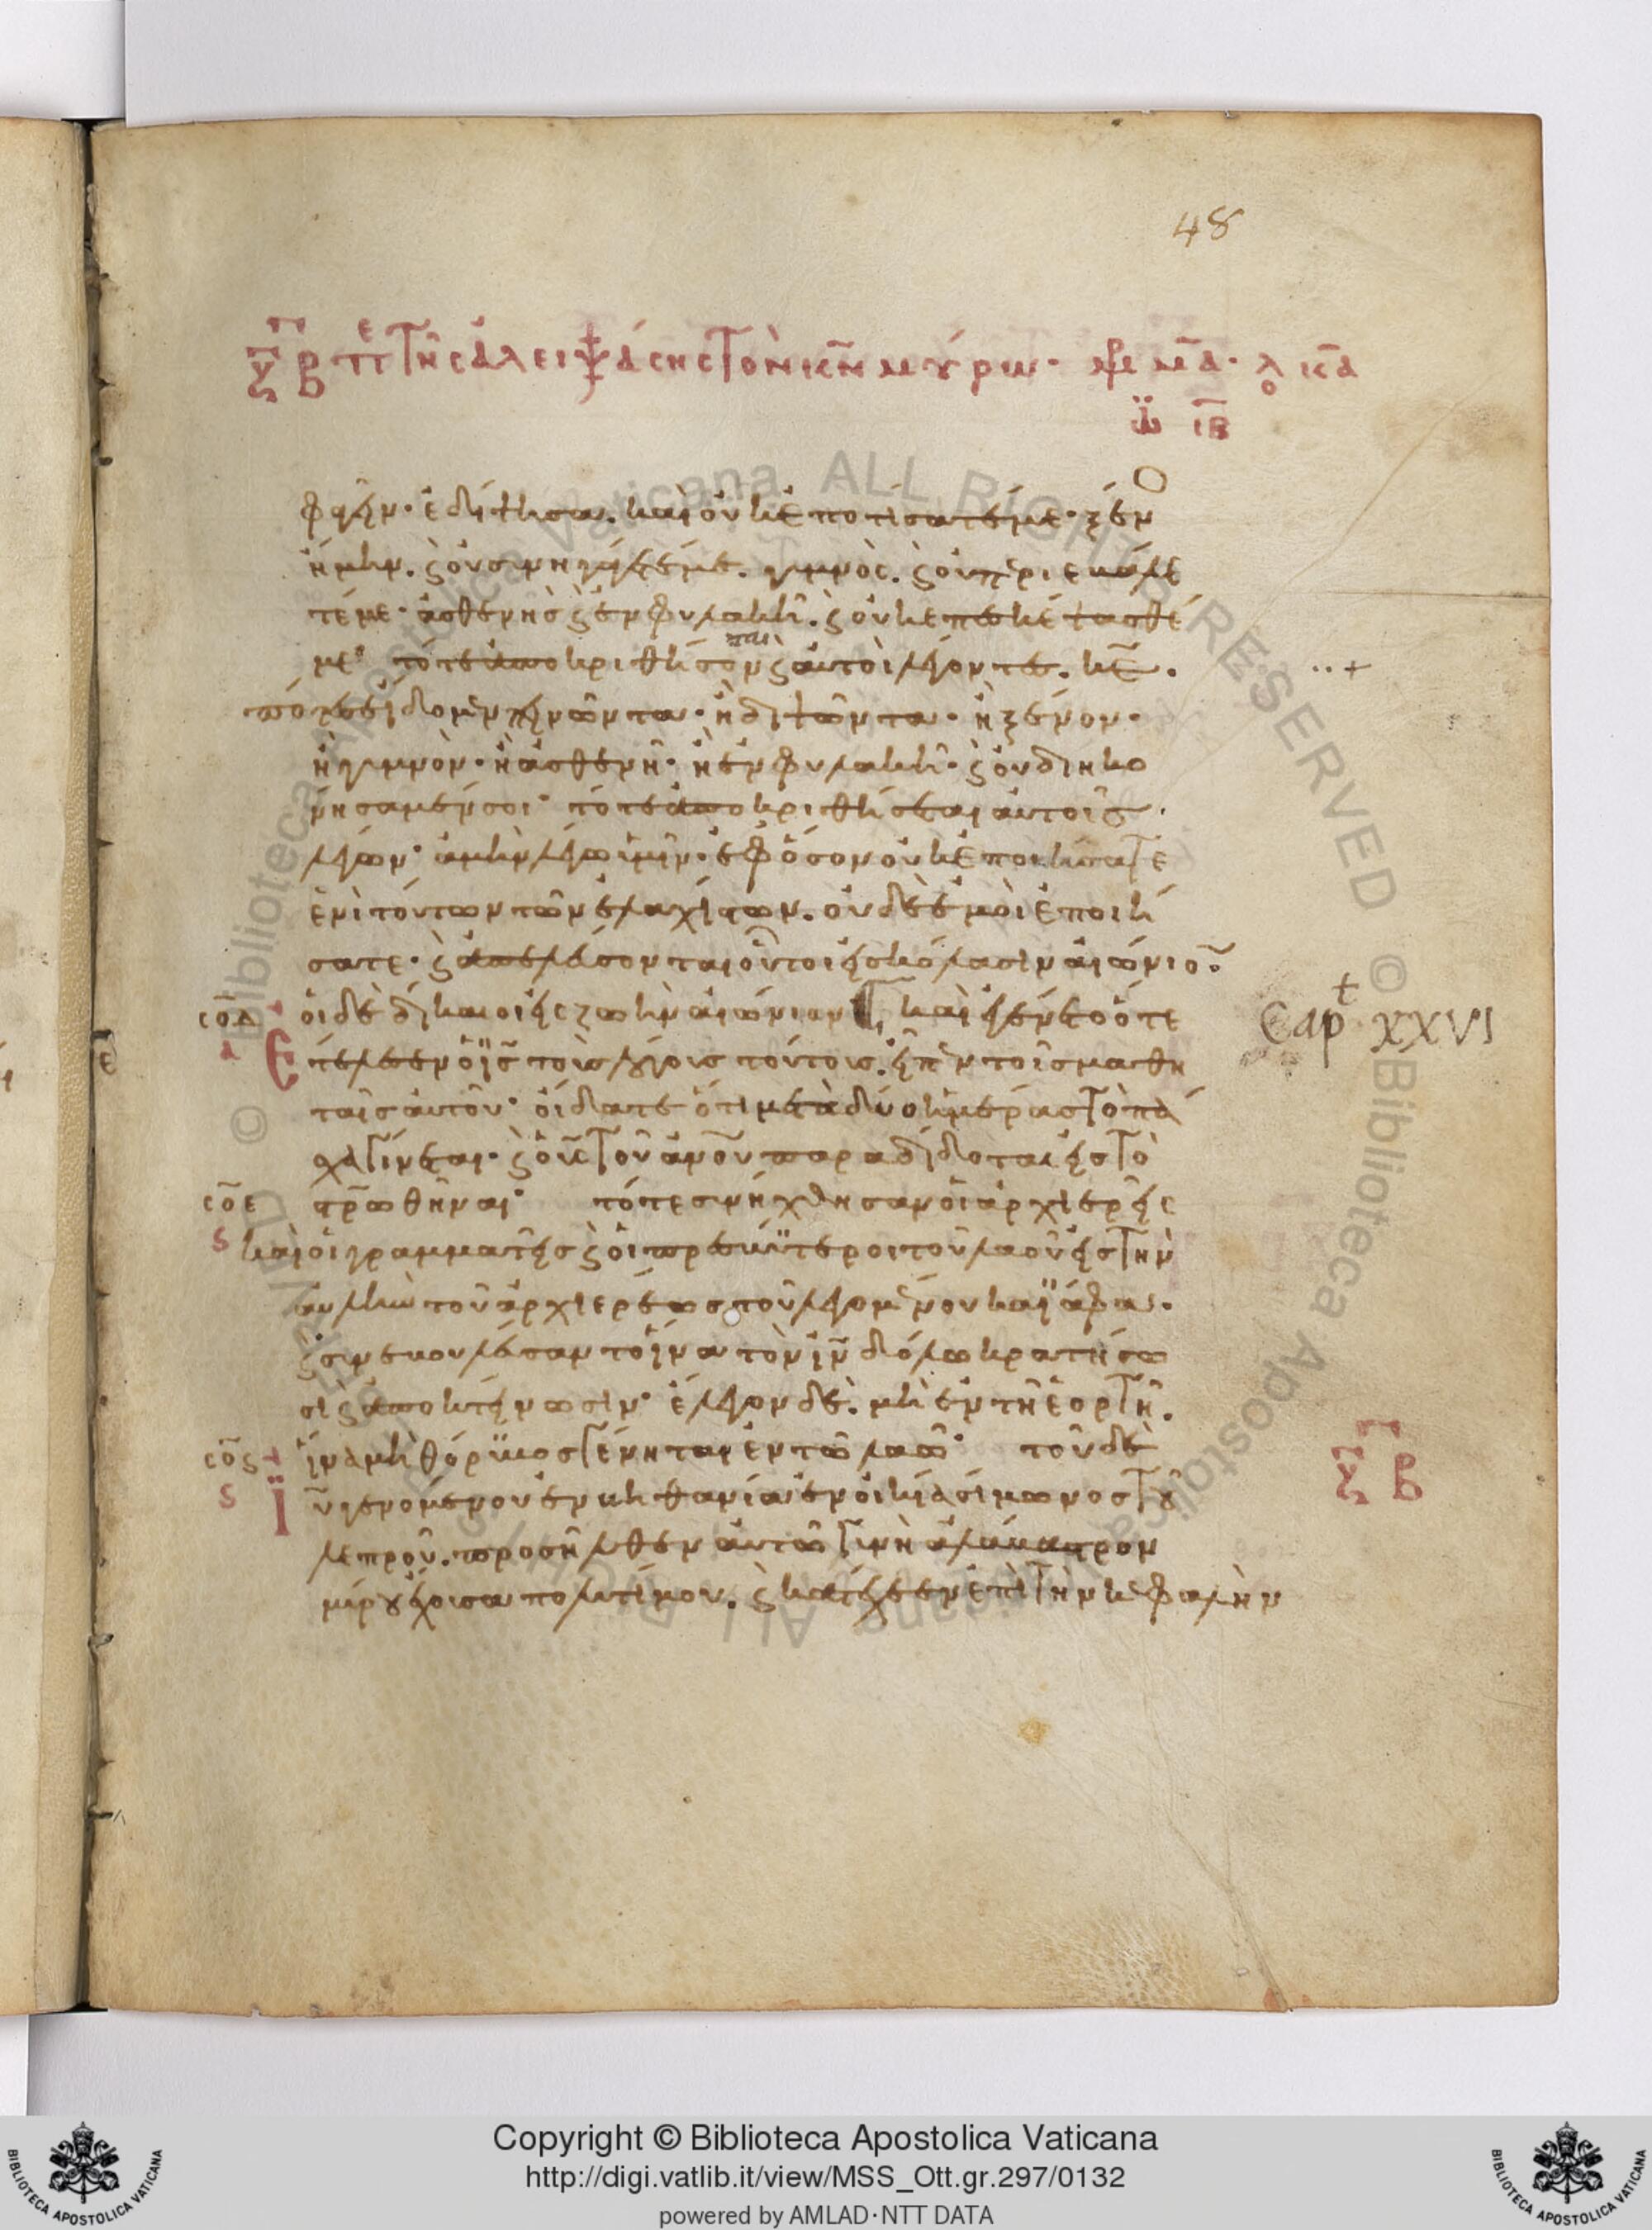 48
ξ̄β π̅ε̅ τῆς ἀλειψάσης τὸν κ̅ν̅ μύρω· μρ ιδ· λο κα
ιω ιβ
φαγεῖν· ἐδίψησα. καὶ οὐκ ἐποτίσατέ με· ξέν
ἤμην. ϗ οὐ συνηγάγετέ με. γυμνὸς. ϗ οὐ περιεβάλε
τέ με· ἀσθενὴς ϗ ἐν φυλακῆ. ϗ οὐκ ἐπεσκέψασθέ
με· τότε ἀποκριθήσονται ϗ αὐτοὶ λέγοντες. κ̅ε̅.
πότε σὲ εἴδομεν πεινῶντα· ἢ διψῶντα· ἢ ξένον·
ἢ γυμνὸν· ἢ ἀσθενῆ· ἢ ἐν φυλακῆ· ϗ οὐ διηκο
νήσαμέν σοι· τότε ἀποκριθήσεται αὐτοῖς.
λέγων· ἀμὴν λέγω ὑμῖν· ἐφ ὅσον οὐκ ἐποιήσατε
ἑνὶ τούτων τῶν ἐλαχίστων. οὐδὲ ἐμοὶ ἐποιή
σατε· ϗ ἀπελεύσονται οὗτοι εἰς κόλασιν αἰώνιον·
σοδ οἱ δὲ δίκαιοι εἰς ζωὴν αἰώνιον καὶ ἐγένετο ὅτε
Ἐτέλεσεν ὁ ι̅ς̅ τοὺς λόγους τούτους. εἶπεν τοῖς μαθη
ταῖς αὐτοῦ· οἴδατε ὅτι μετὰ δύο ἡμέρας τὸ πά
σχα γίνεται· ϗ ὁ υ̅ς̅ τοῦ ἀ̅ν̅ο̅υ̅ παραδίδοται εἰς τὸ
σοε σ̅τ̅ρ̅ωθῆναι· τότε συνήχθησαν οἱ ἀρχιερεῖς
ς καὶ οἱ γραμματεῖς ϗ οἱ πρεσβύτεροι τοῦ λαοῦ εἰς τὴν
αὐλὴν τοῦ ἀρχιερέως τοῦ λεγομένου καϊάφα.
ϗ συνεβουλεύσαντο ἵνα τὸν ι̅ν̅ δόλω κρατήσω
σι ϗ ἀποκτείνωσιν· ἔλεγον δέ. μὴ ἐν τῆ ἑορτῆ.
σος ἵνα μὴ θόρυβος γένηται ἐν τῶ λαῶ· τοῦ δὲ
ς Ἰ̅υ̅ γενομένου ἐν βηθανία ἐν οἰκία σίμωνος τοῦ
λεπροῦ. προσῆλθεν αὐτῶ γυνὴ ἀλάβαστρον
μύρου ἔχουσα πολυτίμου. ϗ κατέχεεν ἐπὶ τὴν κεφαλὴν
Cap^t XXVI
ξ̄β
Copyright © Biblioteca Apostolica Vaticana
http://digi.vatlib.it/view/MSS_Ott.gr.297/0132
powered by AMLAD·NTT DATA
BIBLIOTECA APOSTOLICA VATICANA
BIBLIOTECA APOSTOLICA VATICANA